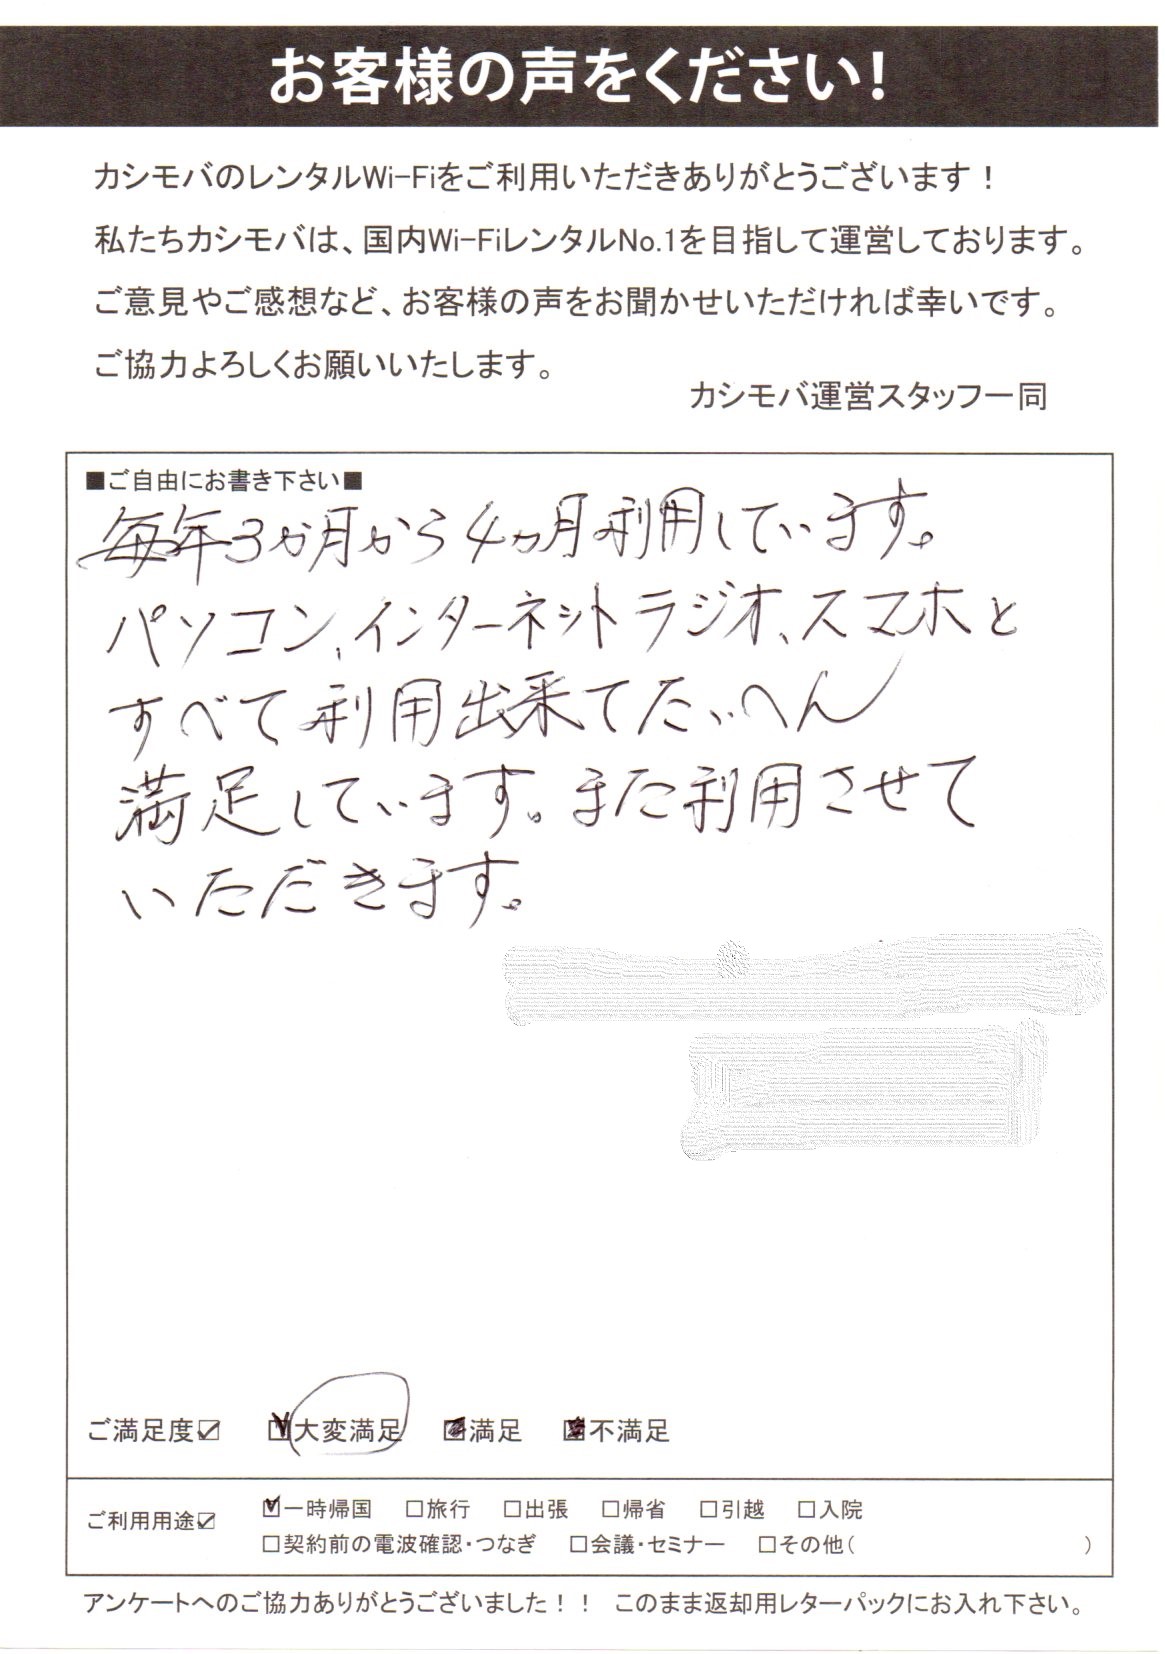 お客様の声をください!
カシモバのレンタルWi-Fiをご利用いただきありがとうございます!
私たちカシモバは、国内Wi-FiレンタルNo.1を目指して運営しております。
ご意見やご感想など、お客様の声をお聞かせいただければ幸いです。
ご協力よろしくお願いいたします。
カシモバ運営スタッフ一同
■ご自由にお書き下さい■
毎年3か月から4ヵ月利用しています。
パソコン、インターネットラジオ、スマホと
すべて利用出来てたいへん
満足しています。また利用させて
いただきます。
ご満足度☑ ☑大変満足 ■満足 ■不満足
ご利用用途☑ ☑一時帰国 □旅行 □出張 □帰省 □引越 □入院
□契約前の電波確認・つなぎ □会議・セミナー □その他( )
アンケートへのご協力ありがとうございました!! このまま返却用レターパックにお入れ下さい。